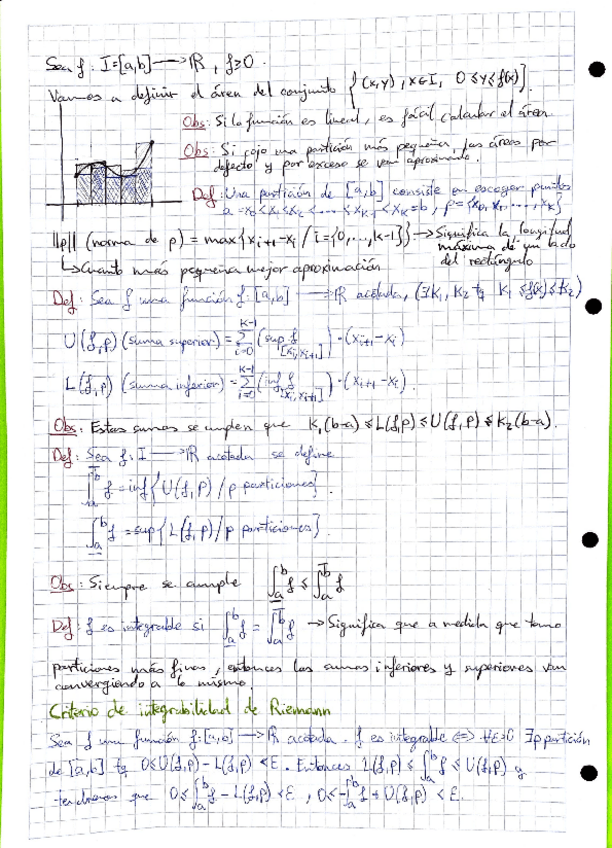 Sea f: I=[a,b] ⟶ ℝ, f≥0.
Vamos a definir el área del conjunto {(x,y), x∈I, 0≤y≤f(x)}.
Obs: Si la función es lineal, es fácil calcular el área.
Obs: Si cojo una partición más pequeña, las áreas por
defecto y por exceso se van aproximando.
Def: Una partición de [a,b] consiste en escoger puntos
a=x₀<x₁<x₂<....<xₖ₋₁<xₖ=b, p={x₀,x₁,...,xₖ}
||p|| (norma de p) = max{xᵢ₊₁-xᵢ / i={0,...,k-1}} → Significa la longitud
máxima de un lado
↳ Cuanto más pequeña mejor aproximación
del rectángulo
Def: Sea f una función f:[a,b] ⟶ ℝ acotada, (∃ k₁, k₂ tq k₁≤f(x)≤k₂)
U(f,p) (suma superior) = Σᵢ₌₀ᵏ⁻¹ (sup f [xᵢ,xᵢ₊₁]) · (xᵢ₊₁-xᵢ)
L(f,p) (suma inferior) = Σᵢ₌₀ᵏ⁻¹ (inf f [xᵢ,xᵢ₊₁]) · (xᵢ₊₁-xᵢ).
Obs: Estas sumas se cumplen que k₁(b-a)≤L(f,p)≤U(f,p)≤k₂(b-a).
Def: Sea f: I ⟶ ℝ acotada se define
∫ₐᵇ̅ f = inf{U(f,p) / p particiones}.
∫a̲ᵇ f = sup{L(f,p) / p particiones}.
Obs: Siempre se cumple ∫a̲ᵇ f ≤ ∫ₐᵇ̅ f
Def: f es integrable si ∫a̲ᵇ f = ∫ₐᵇ̅ f → Significa que a medida que tomo
particiones más finas, entonces las sumas inferiores y superiores van
convergiendo a lo mismo.
Criterio de integrabilidad de Riemann
Sea f una función f:[a,b] ⟶ ℝ acotada. f es integrable ⟺ ∀ε>0 ∃p partición
de [a,b] tq 0≤U(f,p)-L(f,p)<ε. Entonces L(f,p) ≤ ∫ₐᵇ f ≤ U(f,p) y
tendremos que 0≤∫ₐᵇ f - L(f,p) <ε, 0≤-∫ₐᵇ f + U(f,p) <ε.